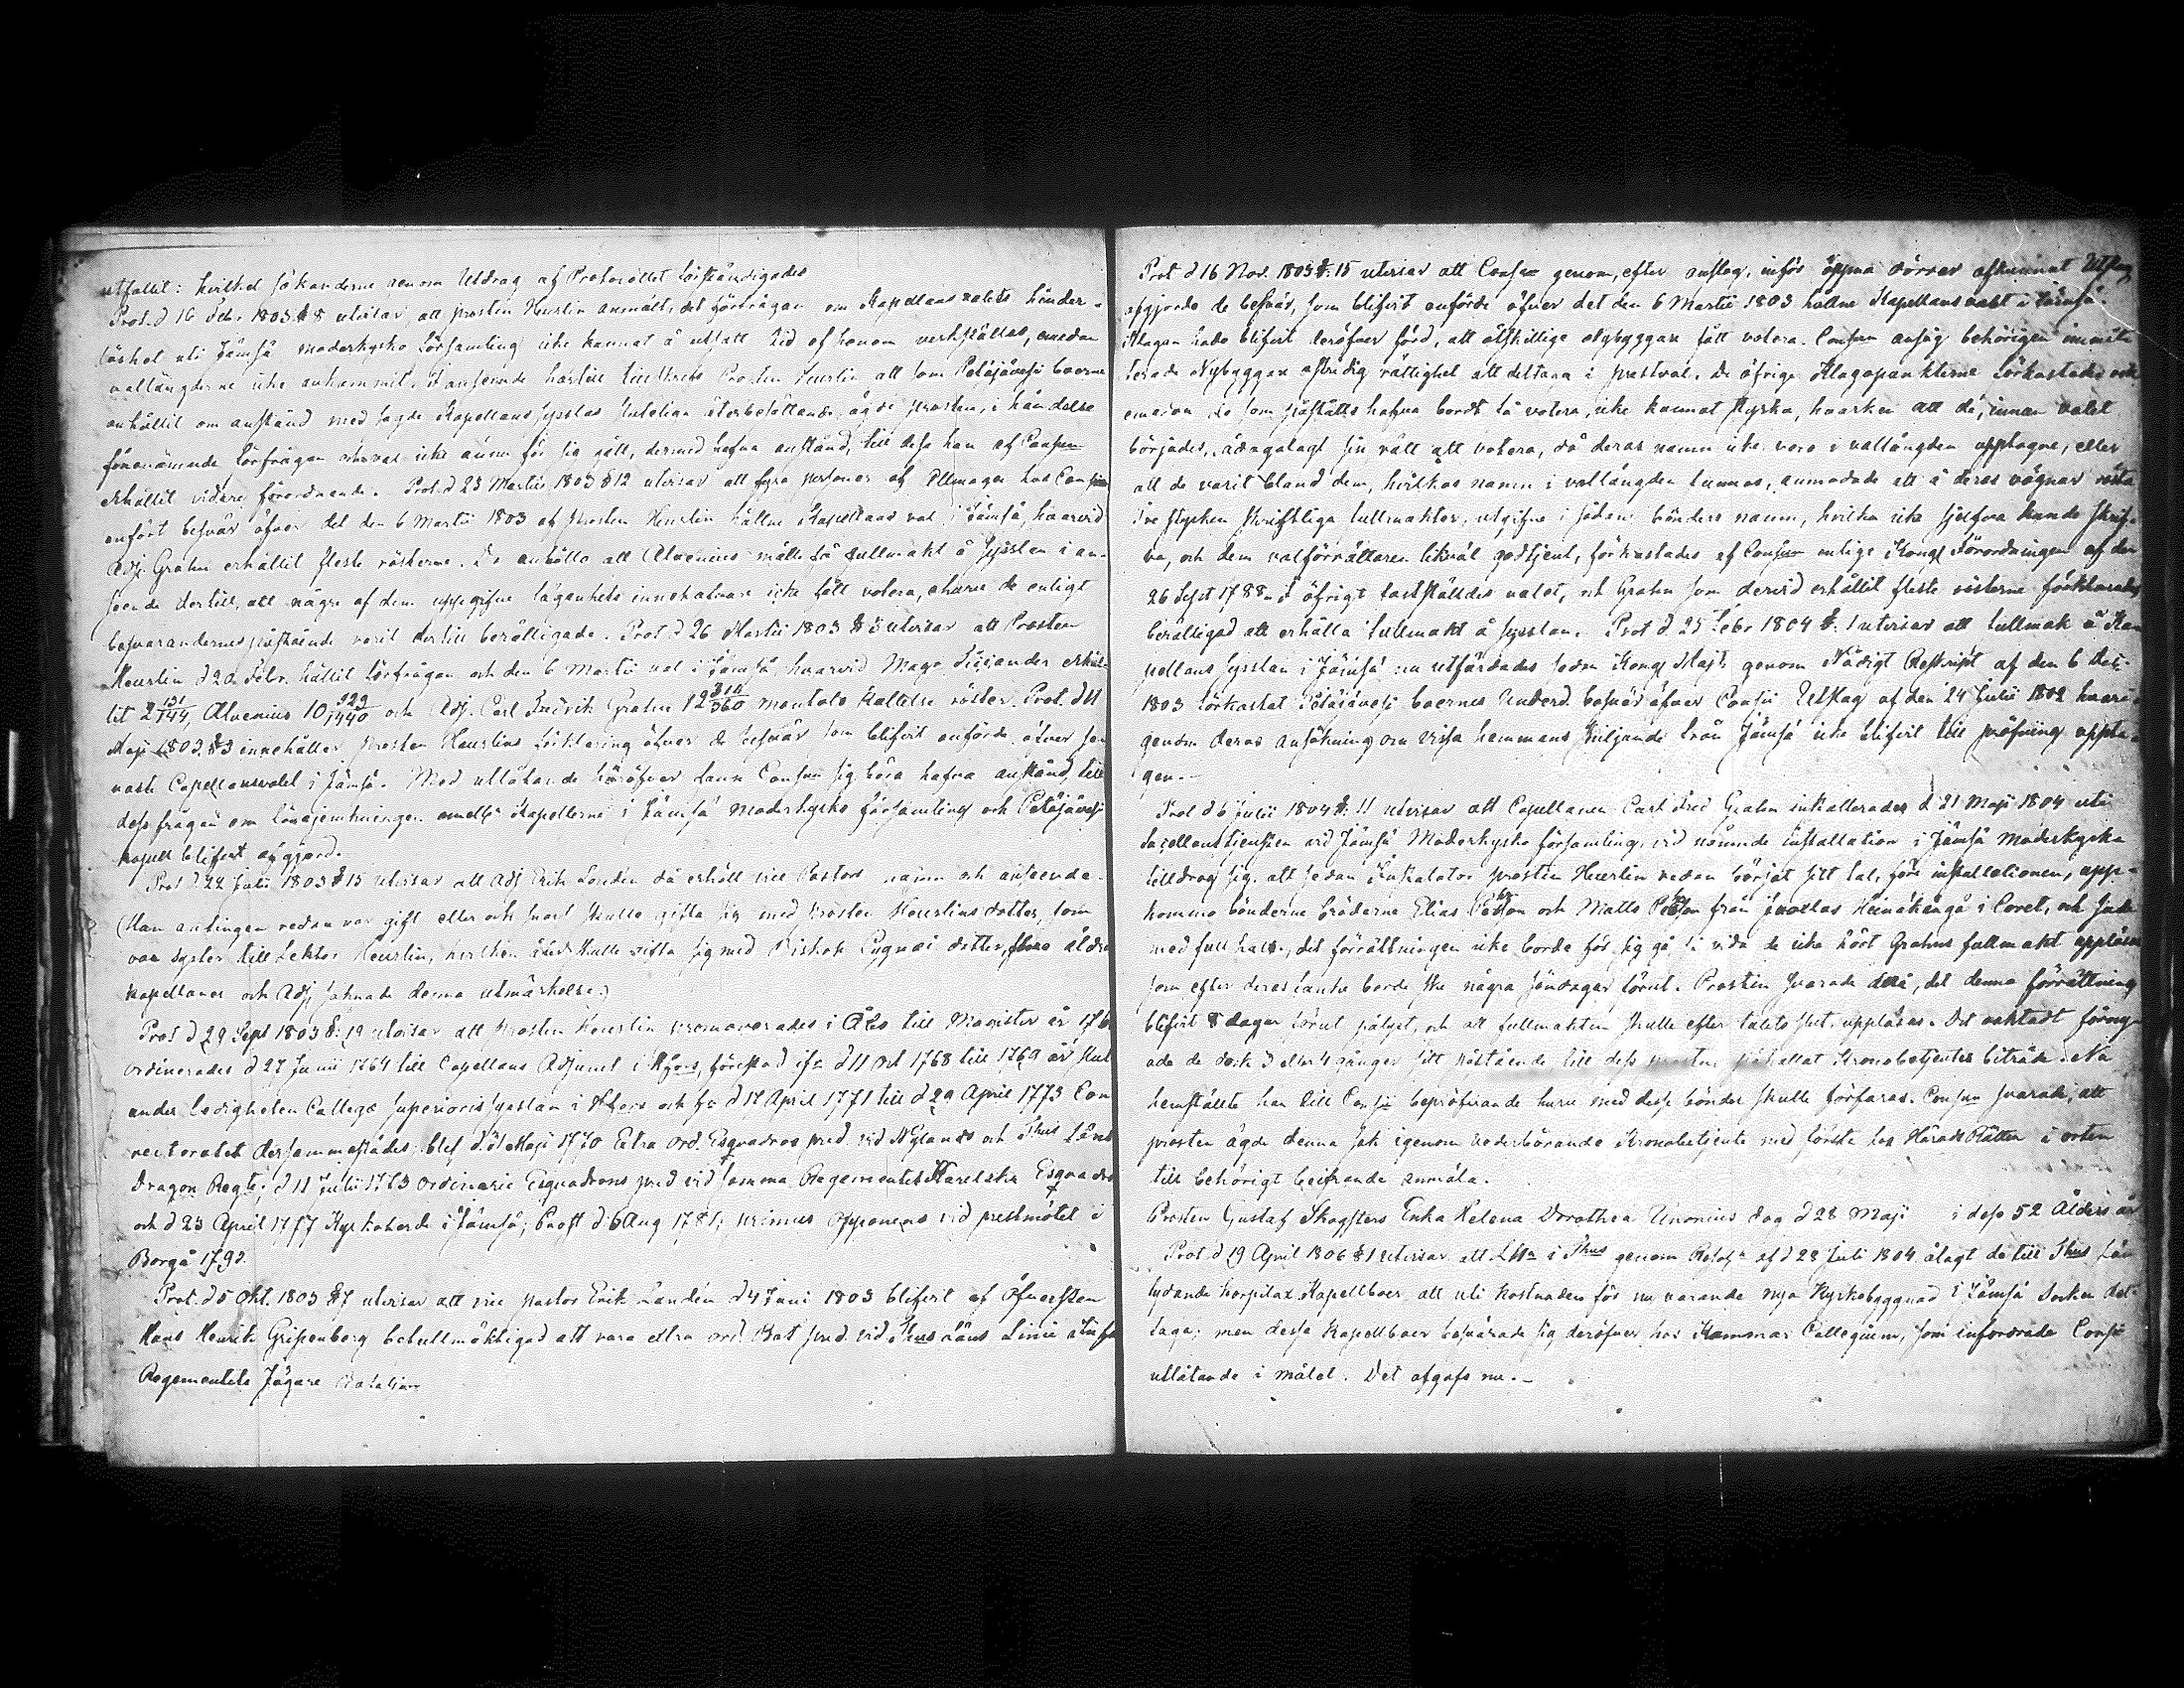 utfallit: hvilket sökanderne genom Utdrag af Protocollet förständigades
Prot. d 16 Febr. 1803 § 8 utvisar, att prosten Heurlin anmält, det förfrågan om Kapellans valets hinder-
löshet uti Jämsä moderkyrko församling icke kunnat å utsatt tid af honom verkställas, emedan
vallängderne icke ankommit. I anseende härtill tillskrefs Prosten Heurlin att som Petäjävesi boerne
anhållit om anstånd med sagde Kapellans sysslas återbesättande, ägde prosten, i händelse
förenämnde förfrågan och val icke ännu för sig gått, dermed hafva anstånd, till dess han af Consm
erhållit vidare förordnande. Prot. d 23 Martii 1803 § 12 utvisar att fyra personer af Allmogen hos Consm
anfört besvär öfver det den 6 Martii 1803 af prosten Heurlin hållne Kapellans val i Jämsä, hvarvid
Adj. Grahn erhållit fleste rösterne. De anhöllo att Alvenius måtte få fullmakt å sysslan i an-
seende dertill, att några af dem uppgifne lägenhets innehafvare icke fått votera, churu de enligt
besvärandernes påstående varit dertill berättigade. Prot d 26 Martii 1803 § 3 utvisar att Prosten
Heurlin d 20 Febr. hållit förfrågan och den 6 Martii val i Jämsä, hvarvid Mag. erhål-
lit 2 131/144, Alvenius 10 329/1440 och Adj. Carl Fredrik Grahn 12 310/360 mantals kallelse röster. Prot. d 11
Maji 1803 § 3 innehåller prosten Heurlins förklaring öfver de besvär som blifvit anförde öfver se-
naste Capellansvalet i Jämsä. Med utlåtande häröfver fann Consm sig böra hafva anstånd, till
dess frågan om lönejemkningen emell. Kapellerne i Jämsä moderkyrko församling och Petäjävesi
kapell blifvit afgjord.
Prot d 22 Julii 1803 § 15 utvisar att Adj Erik Londén då erhöll vice Pastors namn och anseende.
(Han antingen redan var gift eller och snart skulle gifta sig med prosten Heurlins dotter, som
var syster till Lektor Heurlin, hvilken åter skulle gifta sig med Biskop Cygnæi dotter, flere äldre
kapellaner och Adj saknade denna utmärkelse.)
Prot d 29 Sept 1803 §. 19 utvisar att prosten Heurlin promoverades i Åbo till Magister år 176
ordinerades d 27 Junii 1764 till Capellans Adjunct i H:fors, förestod d 11 Oct 1768 till 1769 år slut
under ledigheten Collegæ Superioris sysslan i H:fors och d 11 April 1771 till d 29 April 1773 Con
rectoratet dersammastädes; blef d 21 Maji 1770 Extra ord. Esquadrons pred. vid Nylands och T:hus Läns
Dragon Regte; d 11 Julii 1773 ordinarie Esquadrons pred vid samma Regementes Karelska Esquadro
och d 23 April 1777 Kyrkoherde i Jämsä; Prost d 6 Aug 1781; primus opponens vid prestmötet i
Borgå 1793.
Prot. d 5 Okt. 1803 § 7 utvisar att vice pastor Erik Landén d 4 Juni 1803 blifvit af Öfversten
Hans Henrik Gripenberg befullmäktigad att vara extra ord. Bat. pred. vid T:hus Läns Linie Inf
Regementets Jägare Bataljon
Prot d 16 Nov. 1803 §. 15 utvisar att Consm genom, efter anslag, inför öppna dörrar afkunnat Utslag
afgjorde de besvär, som blifvit anförde öfver det den 6 Martii 1803 hållne Kapellans valet i Jämsä.
Klagan hade blifvit deröfver förd, att åtskillige nybyggare fått votera. Consm ansåg behörigen immit-
terade Nybyggare ostridig rättighet att deltaga i prestval. De öfrige Klagopunkterne förkastades och
emedan de som påståtts hafva bordt få votera, icke kunnat styrka, hvarken att de, innan valet
börjades, ådagalagt sin rätt att votera, då deras namn icke voro i vallängden upptagne, eller
att de varit bland dem, hvilkas namn i vallängden funnos, anmodade att å deras vägnar rösta
Tre stycken skriftliga fullmakter, utgifne i sådane bönders namn, hvilka icke sjelfva kunde skrif-
va, och dem valförrättaren likväl godkjent, förkastades af Consm enlige Kongl Förordningen af den
26 Sept 1788. I öfrigt fastställdes valet, och Grahn som dervid erhållit fleste rösterne förklarades
berättigad att erhålla fullmakt å sysslan. Prot d. 25 Febr 1804 §. 1 utvisar att fullmakt å Ka-
pellans sysslan i Jämsä nu utfärdades sedan Kongl Majt genom Nådigt Reskript af den 6 Dec.
1803 förkastat Petäjävesi boernes Underd. besvär öfver Consii Utslag af den 24 Julii 1802 hvari-
genom deras ansökning om vissa hemmans skiljande från Jämsä icke blifvit till pröfning uppta-
gen.-
Prot d 6 Julii 1804 §. 11 utvisar att Capellanen Carl Fred Grahn installerades d 21 Maji 1804 uti
Capellanstjensten vid Jämsä Moderkyrko församling, vid nämnde installation i Jämsä moderkyrka
tilldrog sig, att sedan Installator prosten Heurlin redan börjat sitt tal, före installationen, upp-
kommo bönderne bröderne Elias Person och Matts Person från Juokslax Heinäkangå i Coret, och sade
med full hals, det förrättningen icke borde för sig gå, så vida de icke hört Grahns fullmakt uppläsas
som efter deras tanke borde ske några söndagar förut. Prosten svarade derå, det denna förrättning
blifvit 8 dagar förut pålyst, och att fullmakten skulle efter talets slut uppläsas. Det oaktadt förny-
ade de dock 3 eller 4 gånger sitt påstående till dess prosten påkallat Kronobetjentes biträde. Nu
hemställte han till Consii bepröfvande huru med desse bönder skulle förfaras. Consm svarade, att
prosten ägde denna sak igenom vederbörande Kronobetjente med första hos Härads Rätten i orten
till behörigt beifrande anmäla.
Prosten Gustaf Skogsters Enka Helena Dorothea Unonius dog d 28 Maji i dess 52 Ålders år
Prot. d 19 April 1806 § 1 utvisar att LHn i T:hus genom Resol.n af d 28 Juli 1804 ålagt de till T:hus Län
lydande Korpilax Kapellboer att uti kostnaden för nu varande nya Kyrkobyggnad i Jämsä Socken del-
taga; men desse Kapellboer besvärade sig deröfver hos Kammar Collegium, som infordrade Consii
utlåtande i målet. Det afgafs nu.-